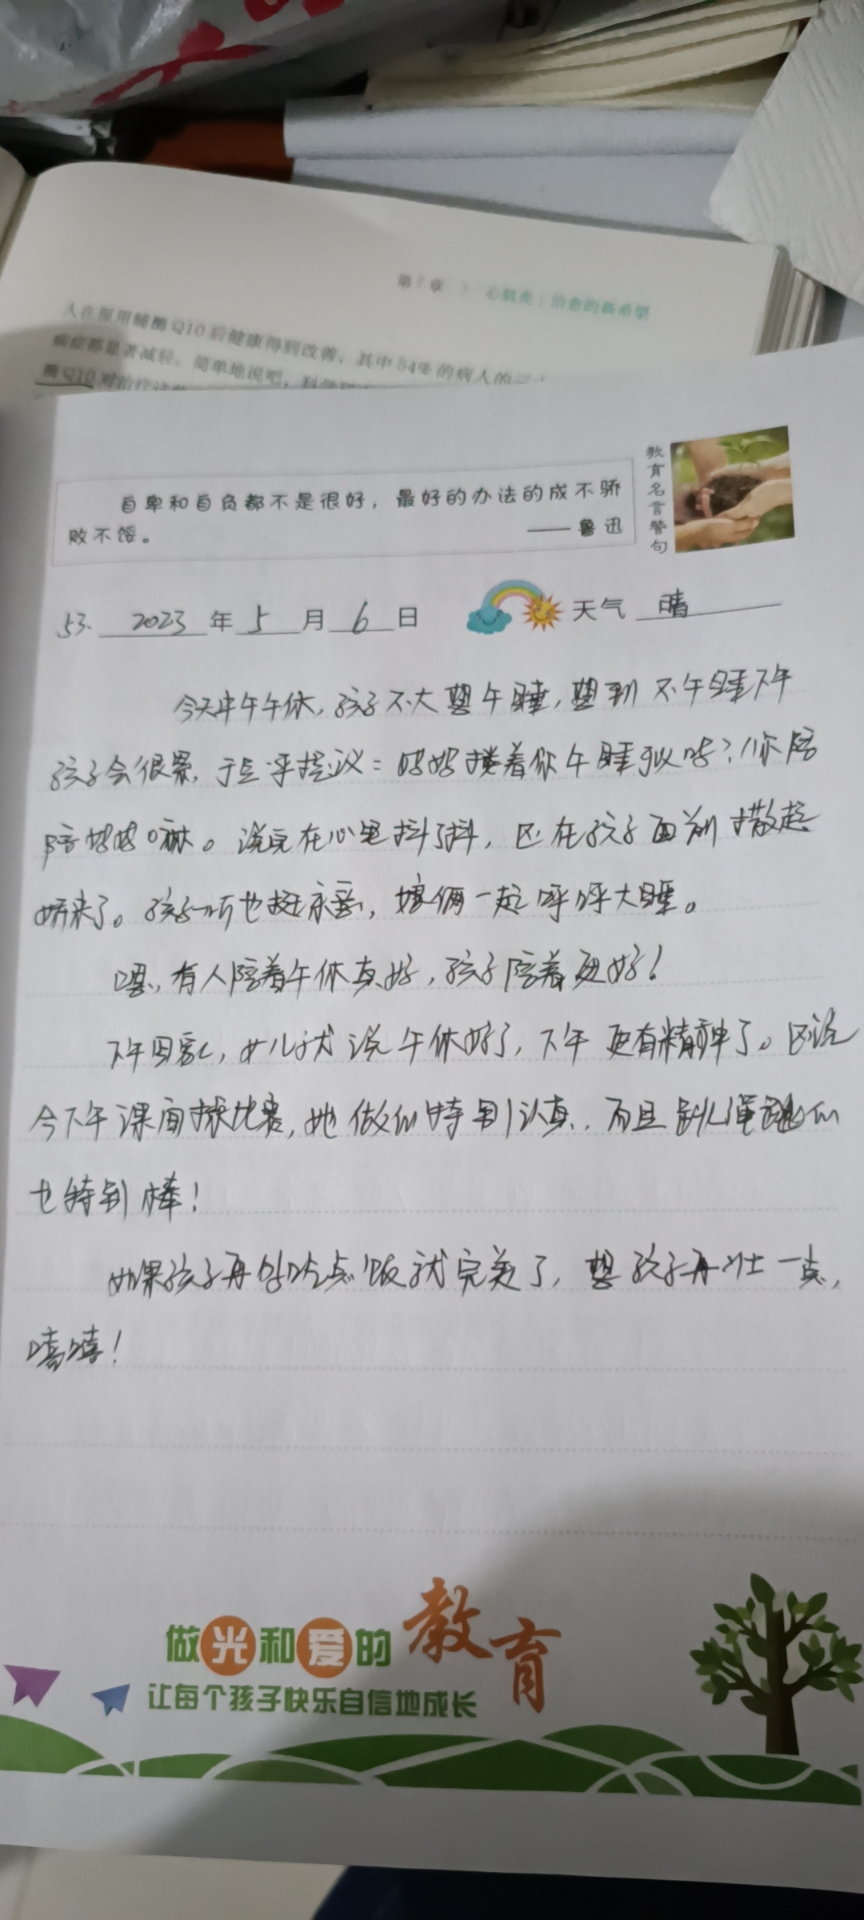 第7章 心肌炎：治愈的新希望
人在服用辅酶Q10后健康得到改善，其中54%的病人的
病症都显著减轻。简单地说吧，科学
酶Q10对治疗
自卑和自负都不是很好，最好的办法的成不骄
败不馁。
——鲁迅
教育名言警句
53. 2023年5月6日 天气 晴
今天中午午休，孩子不大想午睡，想到不午睡下午
孩子会很累，于是乎提议：妈妈搂着你午睡可以吗？你陪
陪妈妈嘛。说完在心里抖了抖，又在孩子面前撒起
娇来了。孩子一听也挺乐意，娘俩一起呼呼大睡。
嗯，有人陪着午休真好，孩子陪着更好！
下午回家，女儿就说午休好了，下午更有精神了。又说
今下午课间操比赛，她做的特别认真，而且跳绳跳的
也特别棒！
如果孩子再多吃点饭就完美了，想孩子再壮一点，
嘻嘻！
做光和爱的教育
让每个孩子快乐自信地成长